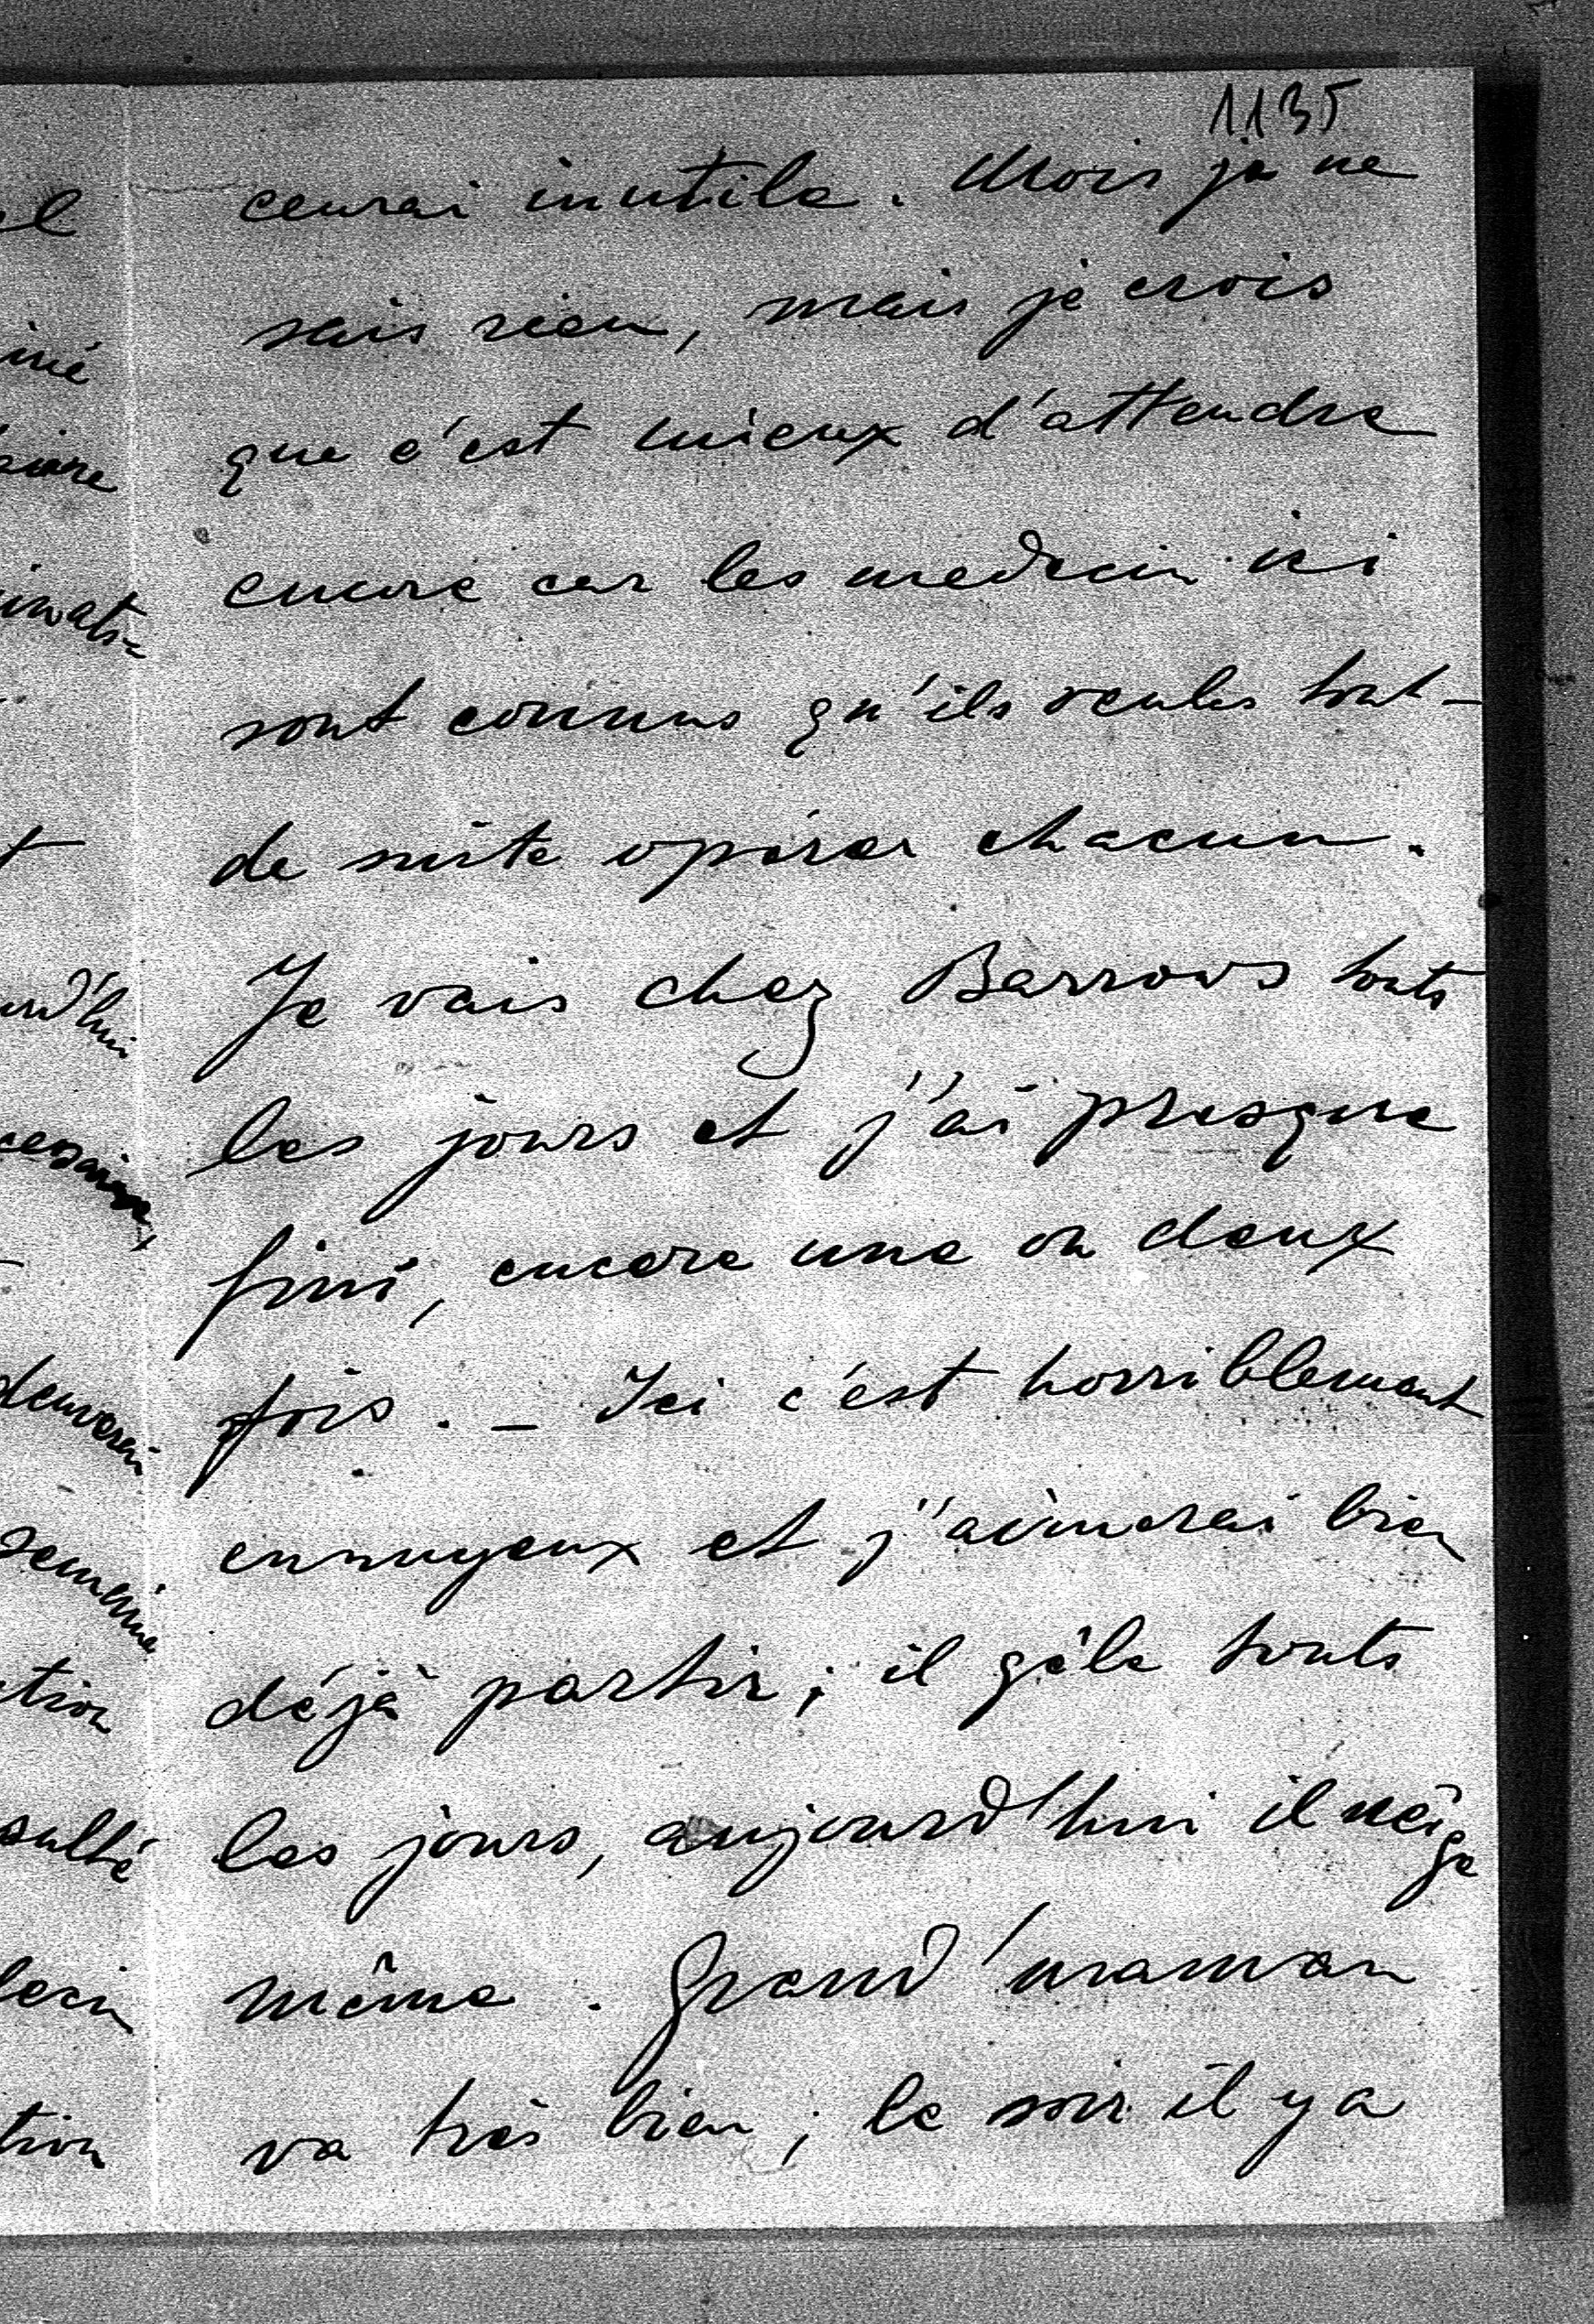 1135
cenrai inutile. Mois je ne
sais rien, mais je crois
que c'est mieux d'attendre
encore car les medecin ici
sont connus qu'ils veules tout-
de suite opérer chacun.
Je vais chez Barrows touts
les jours et j'ai presque
fini, encore une ou deux
fois. - Ici c'est horriblement
ennuyeux et j'aimerai bien
déjà partir; il gèle touts
les jours, aujourd'hui il neige
même. Grand'maman
va très bien; le soir il y a